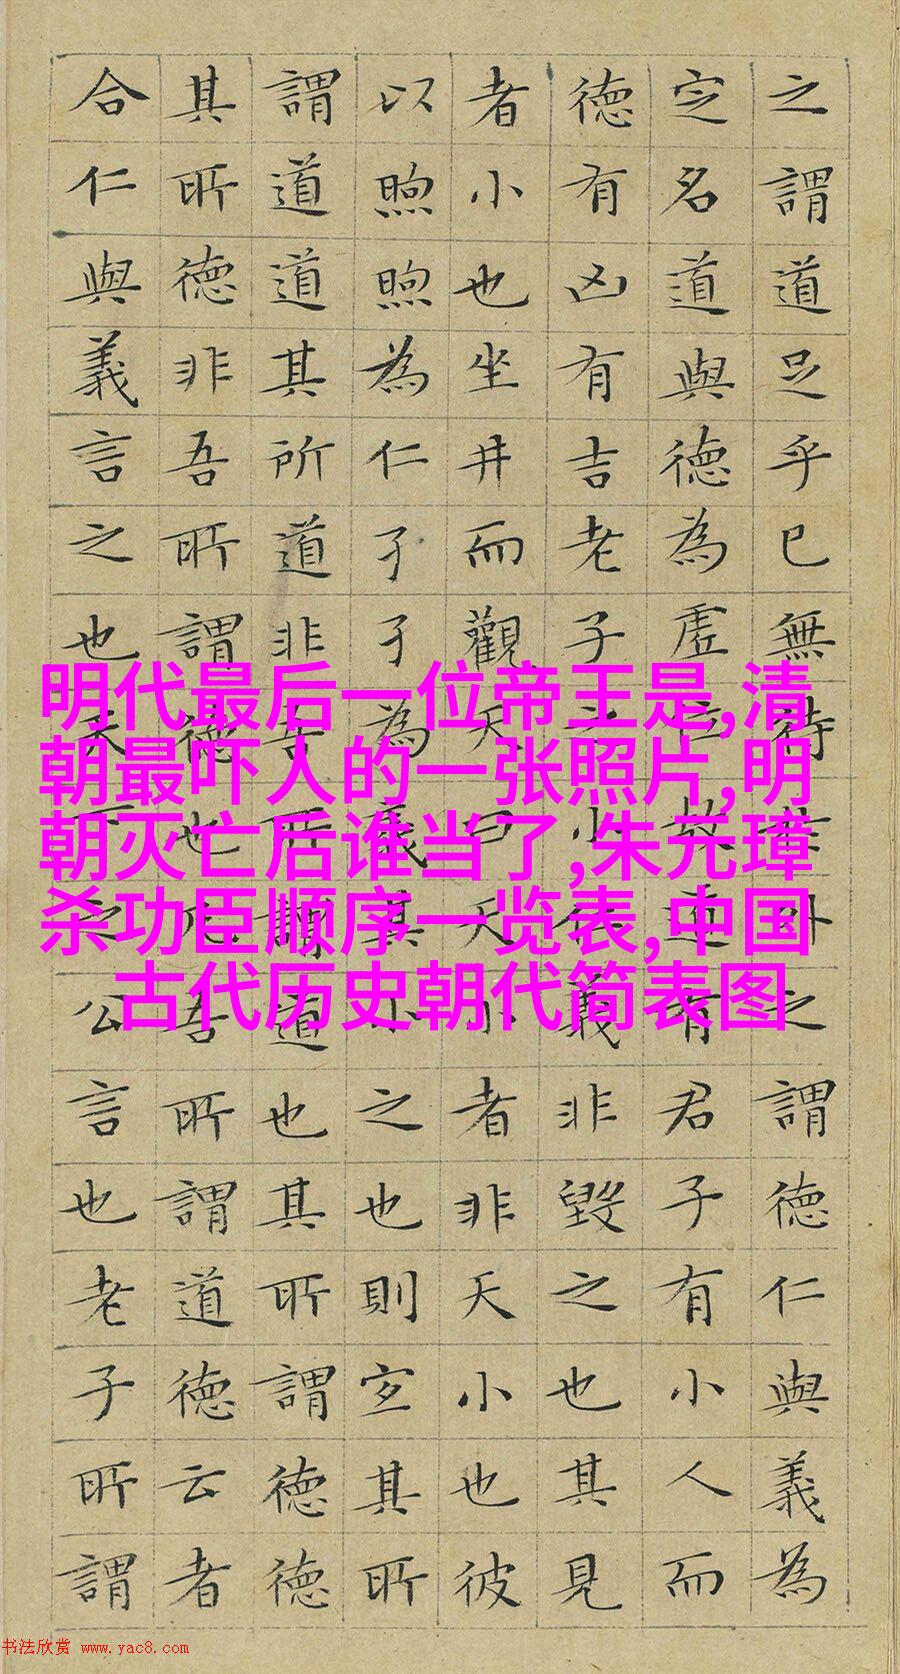 之謂道足乎已無待於外之謂德仁與義為
定名道與德為虛位故道有君子有小人而
德有凶有吉老子之小仁義非毀之也其見
者小也坐井而觀天曰天小者非天小也彼
以煦煦為仁孑孑為義其小之也則宜其所
謂道道其所道非吾所謂道也其所謂德德
其所德非吾所謂德也凡吾所謂道德云者
合仁與義言之也天下之公言也老子所謂
明代最后一位帝王是,清
朝最吓人的一张照片,明
朝灭亡后谁当了,朱元璋
杀功臣顺序一览表,中国
古代历史朝代简表图
书法欣赏 www.yac8.com